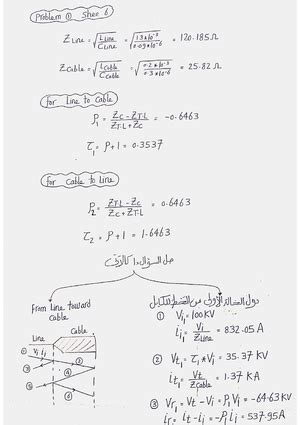 Problem ① Sheet 6
Z Line = √(L Line / C Line) = √(1.3*10⁻³ / 0.09*10⁻⁶) = 120.185 Ω
Z Cable = √(L Cable / C Cable) = √(0.2*10⁻³ / 0.3*10⁻⁶) = 25.82 Ω
for Line to Cable
ρ₁ = (Zc - ZT.L) / (ZT.L + Zc) = -0.6463
τ₁ = ρ+1 = 0.3537
for Cable to Line
ρ₂ = (ZT.L - Zc) / (Zc + ZT.L) = 0.6463
τ₂ = ρ+1 = 1.6463
From Line toward
Cable
Line
Cable
① Vi ii
②
③
④
⑤
⑥
① Vi₁ = 100 KV
ii₁ = Vi / Z Line = 832.05 A
② Vt₁ = τ₁*Vi = 35.37 KV
it₁ = Vt / Z Cable = 1.37 KA
③ Vr₁ = Vt - Vi = ρ₁Vi = -64.63 KV
ir₁ = it - ii = -ρ₁ii = 537.95 A